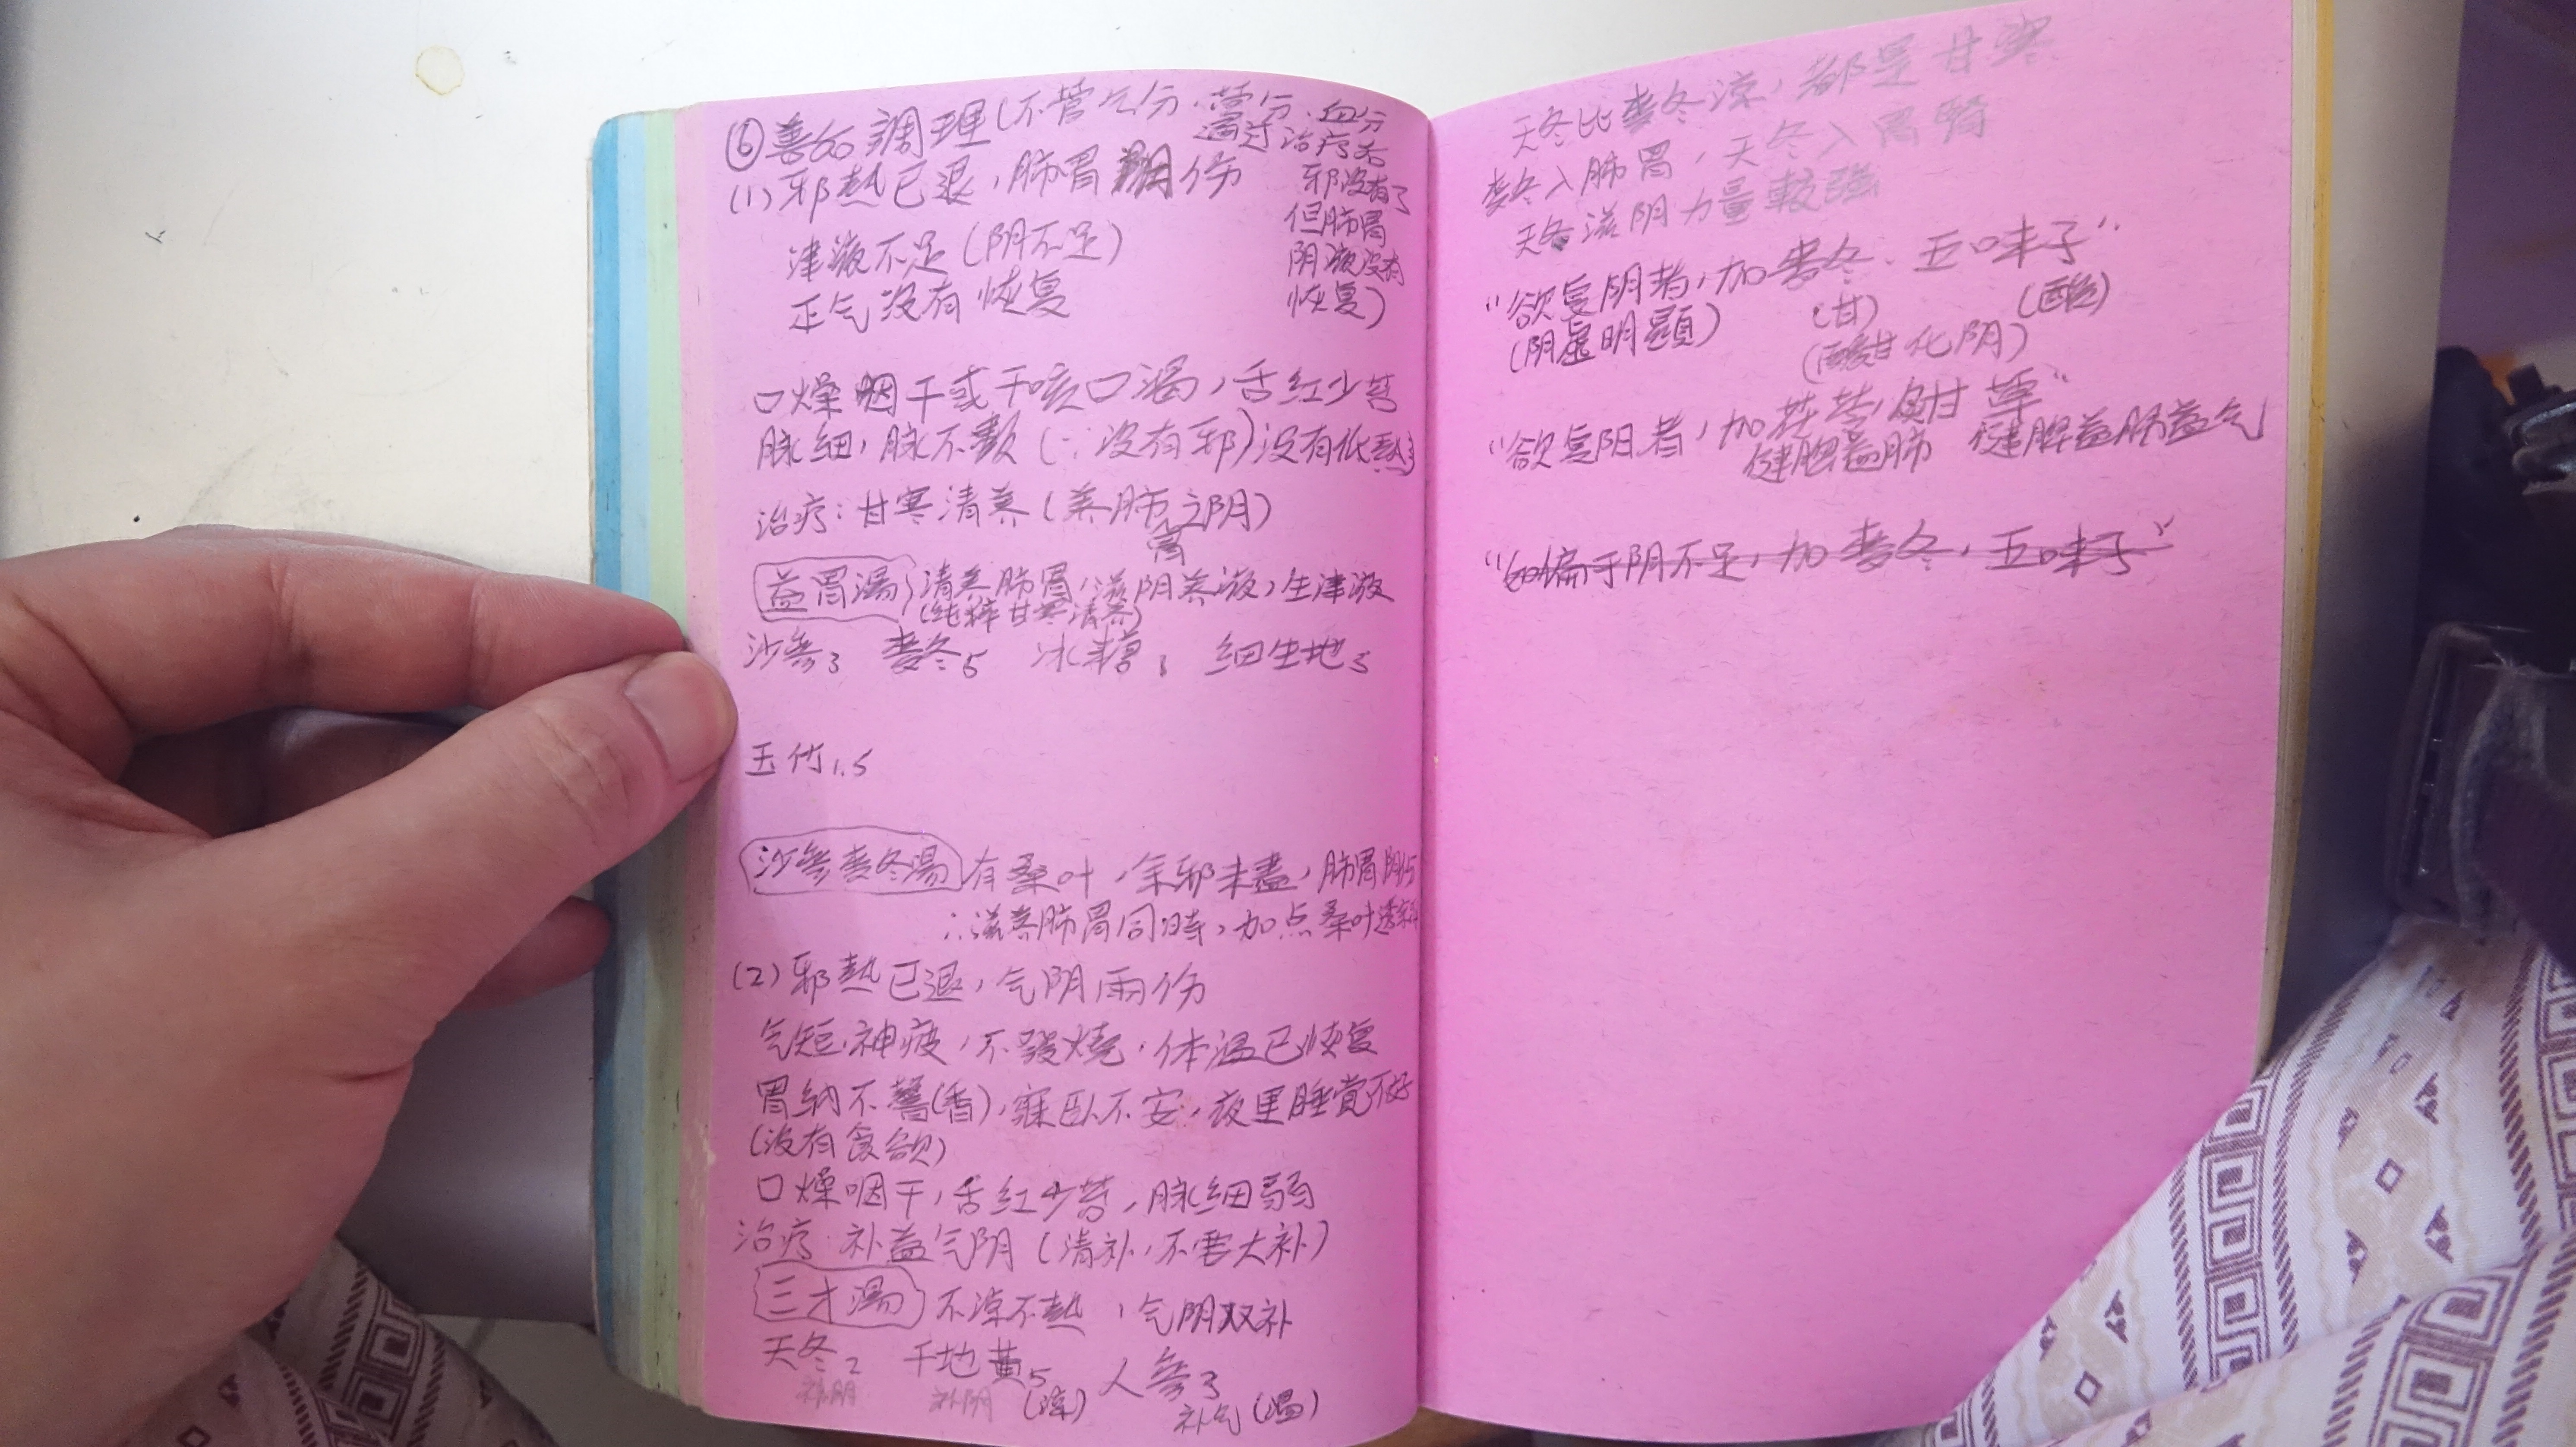 ⑥善后調理(不管气分、营分、血分
通过治疗后
邪没有了
但肺胃
阴液没有
恢复)
(1)邪熱已退,肺胃阴伤
津液不足(阴不足)
正气没有恢复
口燥咽干或干咳口渴,舌红少苔
脉细,脉不数(∵没有邪)没有低熱
治疗:甘寒清养(养肺胃之阴)
益胃湯 清养肺胃,滋阴养液,生津液
(纯粹甘寒清养)
沙參3 麦冬5 冰糖1 细生地5
玉竹1.5
沙參麦冬湯 有桑叶,余邪未盡,肺胃阴伤
∴滋养肺胃同時,加点桑叶透
(2)邪熱已退,气阴兩伤
气短神疲,不發燒,体温已恢复
胃納不馨(香),寐臥不安,夜里睡觉不好
(没有食欲)
口燥咽干,舌红少苔,脉细弱
治疗:补益气阴(清补,不要大补)
三才湯 不凉不熱,气阴双补
天冬2 干地黄5 人參3
补阴 补阴 (凉) 补气(温)
天冬比麦冬凉,都是甘寒
麦冬入肺胃,天冬入胃腎
天冬滋阴力量較強
“欲复阴者,加麦冬、五味子”
(阴虚明顯) (甘) (酸)
(酸甘化阴)
“欲复阳者,加茯苓,炙甘草”
健脾益肺 健脾益肺益气
“如偏于阴不足,加麦冬,五味子”